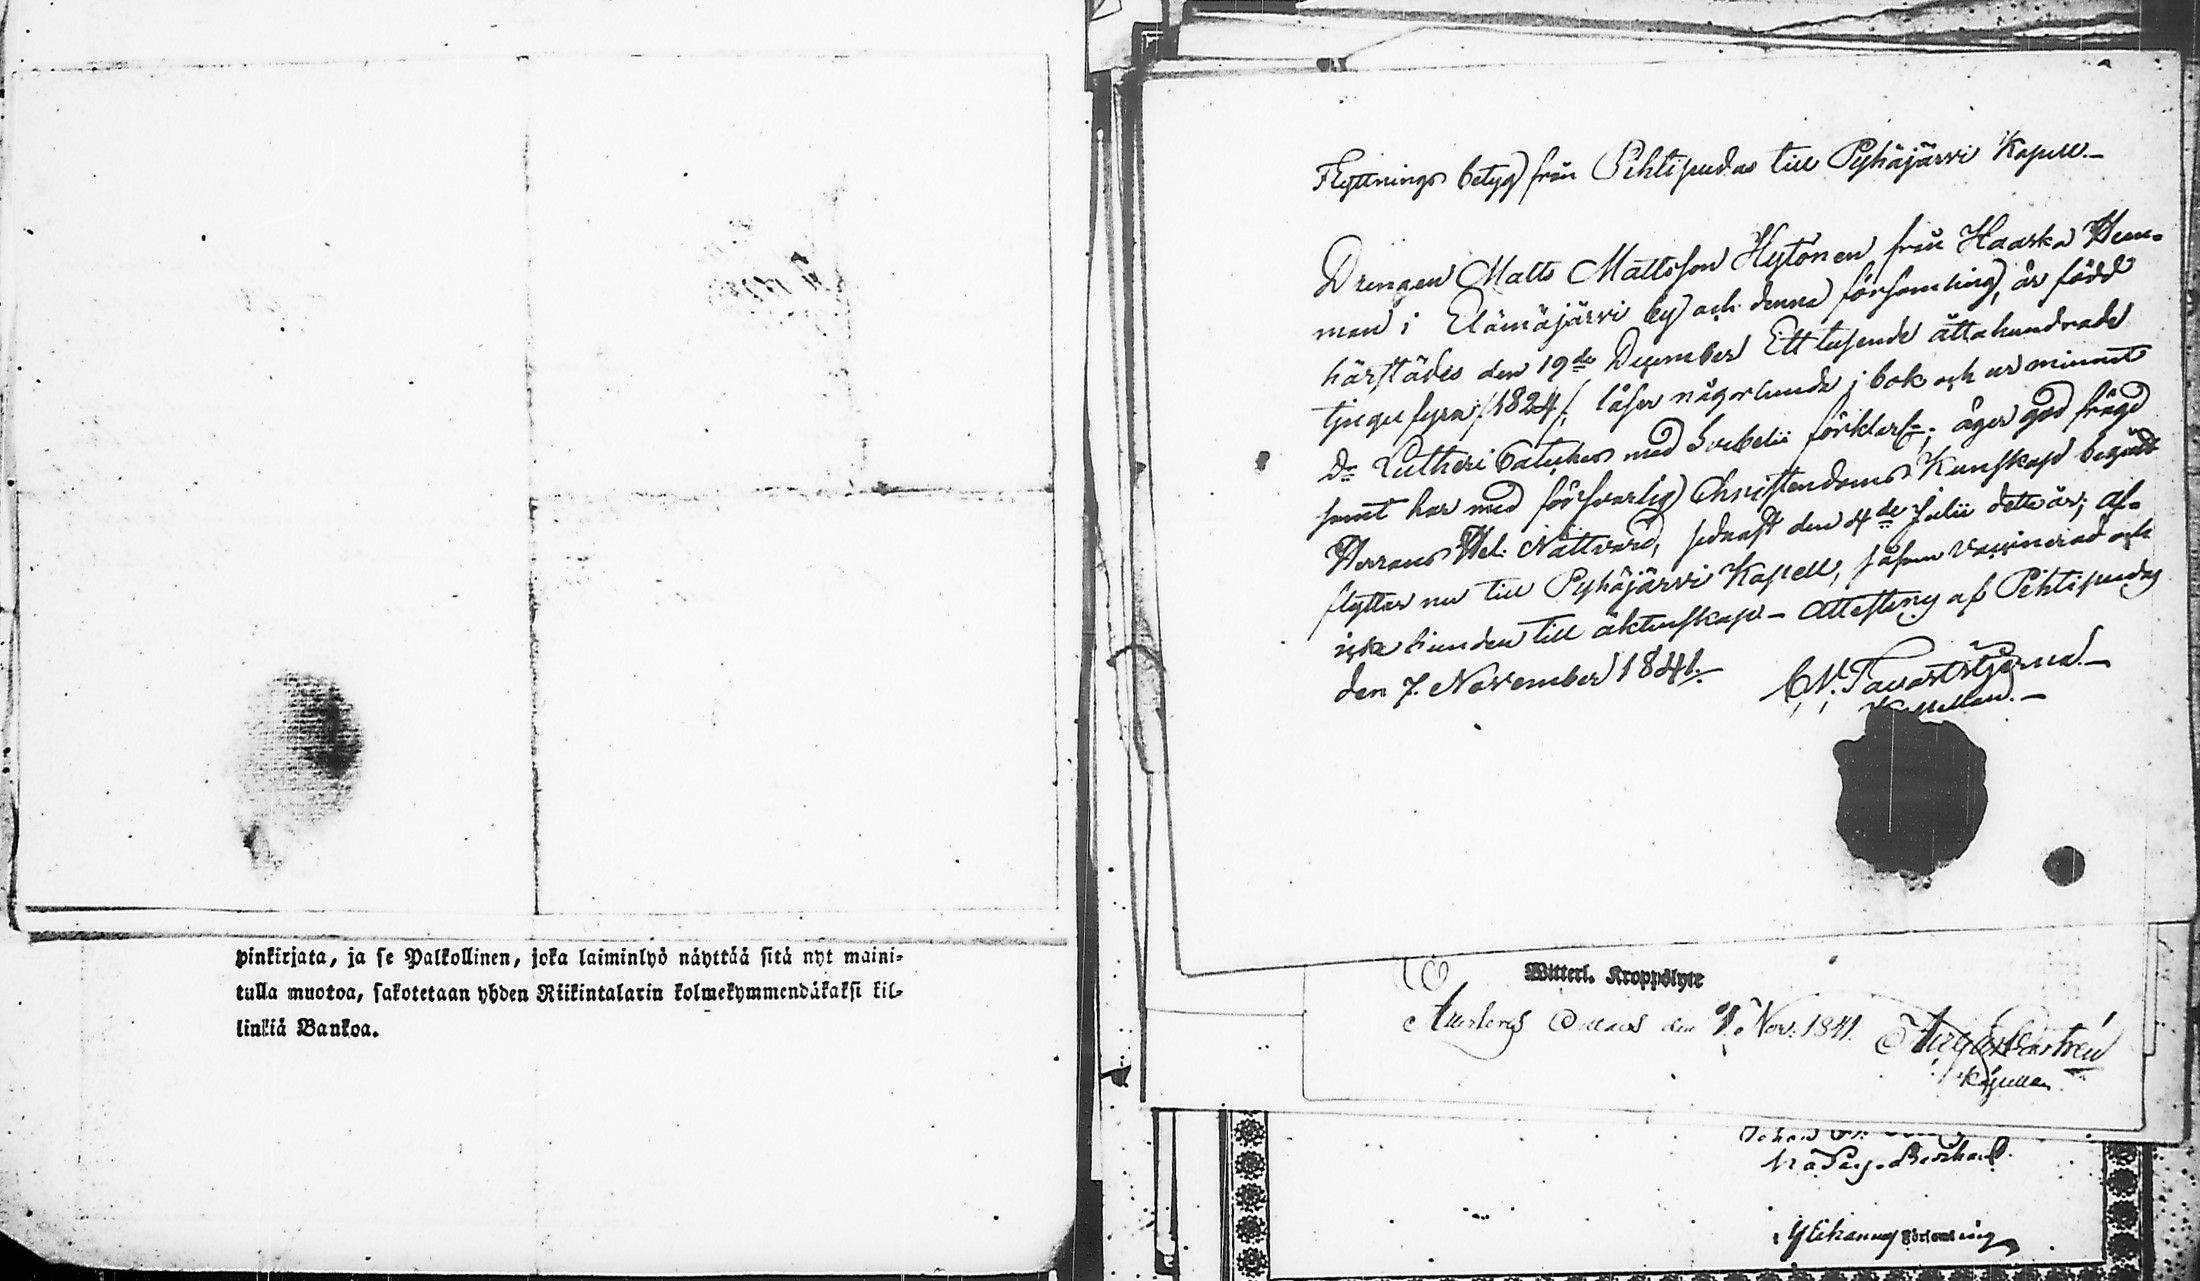 pinkirjata, ja se Palkollinen, joka laiminlyö näyttää sitä nyt maini-
tulla muotoa, sakotetaan yhden Riikintalarin kolmekymmendäkaksi kil-
linkiä Bankoa.
Flyttnings betyg från Pihtipudas till Pyhäjärvi Kapell.-
Drengen Matts Mattsson Hytönen från Haaska Hem-
man i Elämäjärvi by och denna församling, är född
härstädes den 19de December Ett tusende åttahundrade
tjugu fyra /:1824:/, läser någorlunda i bok och ur minnet
Dr Lutheri Cateches med Svebelii förklar:, äger god frägd
samt har med försvarlig Christendoms Kunskap begått
Herrans Hel. Nattvard, sednast den 4de Julii detta år; af-
flyttar nu till Pyhäjärvi Kapell, såsom vaccinerad och
icke bunden till äktenskap - Attesteras af Pihtipudas
den 7. November 1841.-
C.N. Tavaststjerna.-
Kapellan.-
Witterl. Kroppslyte
Attesteras den 7. Nov. 1841.
Kapellan
Johan
församling